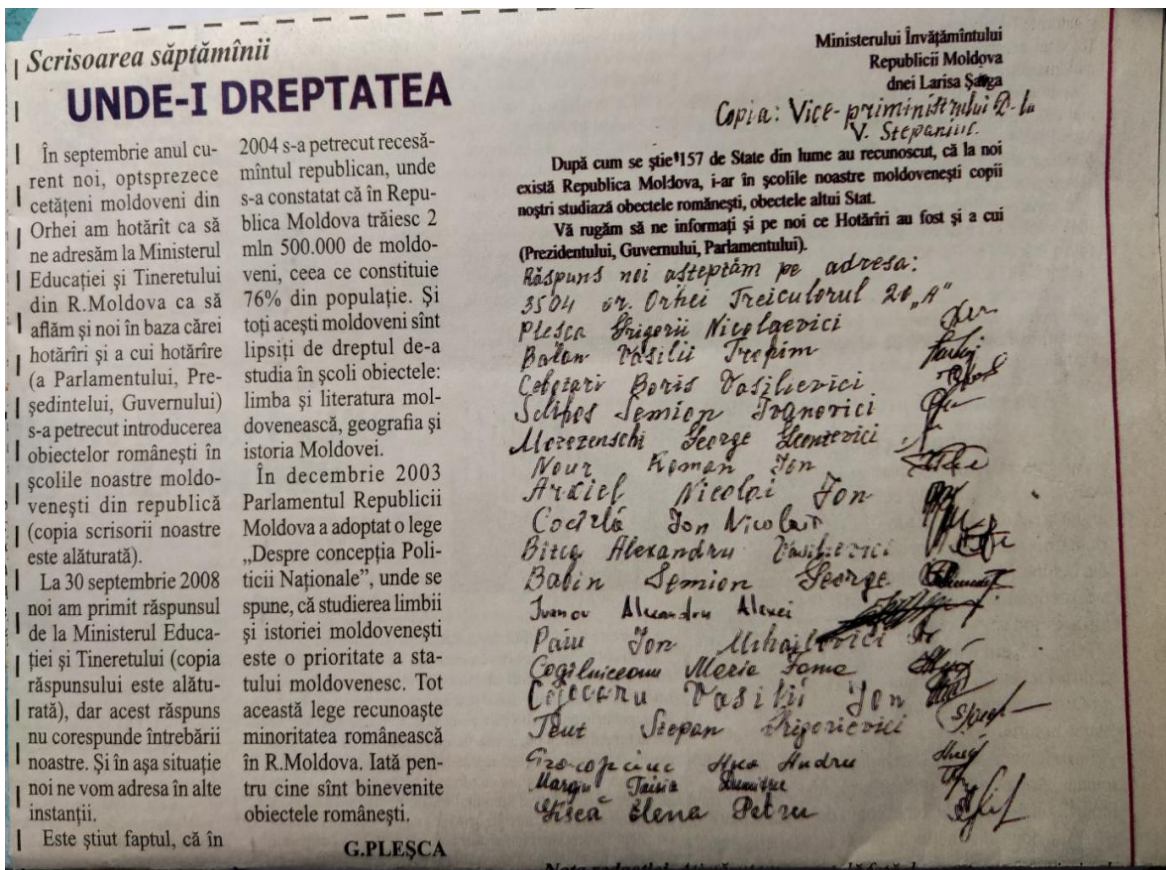 Scrisoarea săptămînii
UNDE-I DREPTATEA
În septembrie anul cu-
rent noi, optsprezece
cetățeni moldoveni din
Orhei am hotărît ca să
ne adresăm la Ministerul
Educației și Tineretului
din R.Moldova ca să
aflăm și noi în baza cărei
hotărîri și a cui hotărîre
(a Parlamentului, Pre-
ședintelui, Guvernului)
s-a petrecut introducerea
obiectelor românești în
școlile noastre moldo-
venești din republică
(copia scrisorii noastre
este alăturată).
La 30 septembrie 2008
noi am primit răspunsul
de la Ministerul Educa-
ției și Tineretului (copia
răspunsului este alătu-
rată), dar acest răspuns
nu corespunde întrebării
noastre. Și în așa situație
noi ne vom adresa în alte
instanții.
Este știut faptul, că în
2004 s-a petrecut recesă-
mîntul republican, unde
s-a constatat că în Repu-
blica Moldova trăiesc 2
mln 500.000 de moldo-
veni, ceea ce constituie
76% din populație. Și
toți acești moldoveni sînt
lipsiți de dreptul de-a
studia în școli obiectele:
limba și literatura mol-
dovenească, geografia și
istoria Moldovei.
În decembrie 2003
Parlamentul Republicii
Moldova a adoptat o lege
„Despre concepția Poli-
ticii Naționale”, unde se
spune, că studierea limbii
și istoriei moldovenești
este o prioritate a sta-
tului moldovenesc. Tot
această lege recunoaște
minoritatea românească
în R.Moldova. Iată pen-
tru cine sînt binevenite
obiectele românești.
G.PLEȘCA
Ministerului Învățămîntului
Republicii Moldova
dnei Larisa Șavga
Copia: Vice-priministrului D-lu
V. Stepaniuc.
După cum se știe 157 de State din lume au recunoscut, că la noi
există Republica Moldova, i-ar în școlile noastre moldovenești copii
noștri studiază obectele românești, obectele altui Stat.
Vă rugăm să ne informați și pe noi ce Hotărîri au fost și a cui
(Prezidentului, Guvernului, Parlamentului).
Răspuns noi așteptăm pe adresa:
3504 or. Orhei Treiculorul 20 „A"
Plesca Grigorii Nicolaevici
Balan Vasilii Trefim
Cebotari Boris Vasilievici
Semion Ivanovici
George
Nour Roman Ion
Nicolai Ion
Cocîrlă Ion Nicolai
Bitca Alexandru Vasilievici
Babin Semion George
Ivanov Alexandru Alexei
Paiu Ion Mihailovici
Cogîlniceanu Maria Toma
Cojocaru Vasilii Ion
Stepan Grigorievici
Andru
Margin Taisia Dumitru
Elena Petru